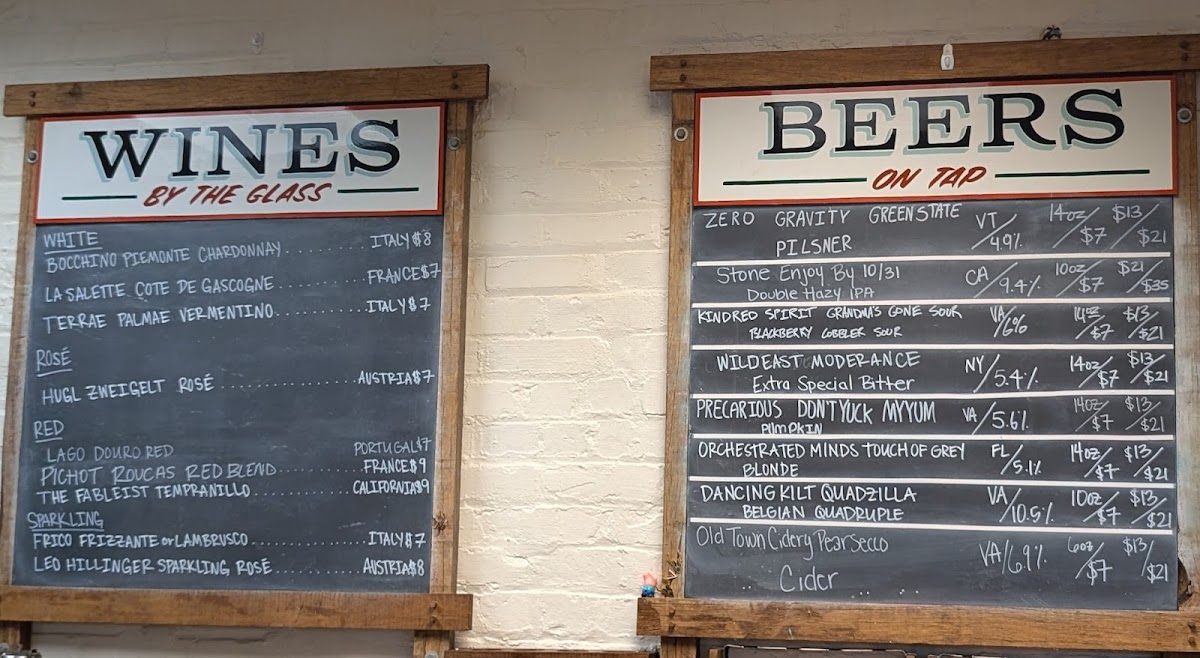 WINES
BY THE GLASS
WHITE
BOCCHINO PIEMONTE CHARDONNAY.......... ITALY $8
LA SALETTE COTE DE GASCOGNE .......... FRANCE $7
TERRAE PALMAE VERMENTINO.......... ITALY $7
ROSÉ
HUGL ZWEIGELT ROSÉ .......... AUSTRIA $7
RED
LAGO DOURO RED PORTUGAL $7
PICHOT ROUCAS RED BLEND.......... FRANCE $9
THE FABLEIST TEMPRANILLO.......... CALIFORNIA $9
SPARKLING
FRICO FRIZZANTE or LAMBRUSCO.......... ITALY $7
LEO HILLINGER SPARKLING ROSÉ.......... AUSTRIA $8
BEERS
ON TAP
ZERO GRAVITY GREEN STATE VT/ 14oz/ $13/
PILSNER 4.9% $7 $21
Stone Enjoy By 10/31 CA/ 10oz/ $21/
Double Hazy IPA 9.4% $7 $35
KINDRED SPIRIT GRANDMA'S GONE SOUR VA/ 14oz/ $13/
BLACKBERRY COBBLER SOUR 6% $7 $21
WILDEAST MODERANCE NY/ 14oz/ $13/
Extra Special Bitter 5.4% $7 $21
PRECARIOUS DON'T YUCK MY YUM VA/ 14oz/ $13/
PUMPKIN 5.6% $7 $21
ORCHESTRATED MINDS TOUCH OF GREY FL/ 14oz/ $13/
BLONDE 5.1% $7 $21
DANCING KILT QUADZILLA VA/ 10oz/ $13/
BELGIAN QUADRUPLE 10.5% $7 $21
Old Town Cidery Pear Secco VA/ 6oz/ $13/
Cider 6.9% $7 $21